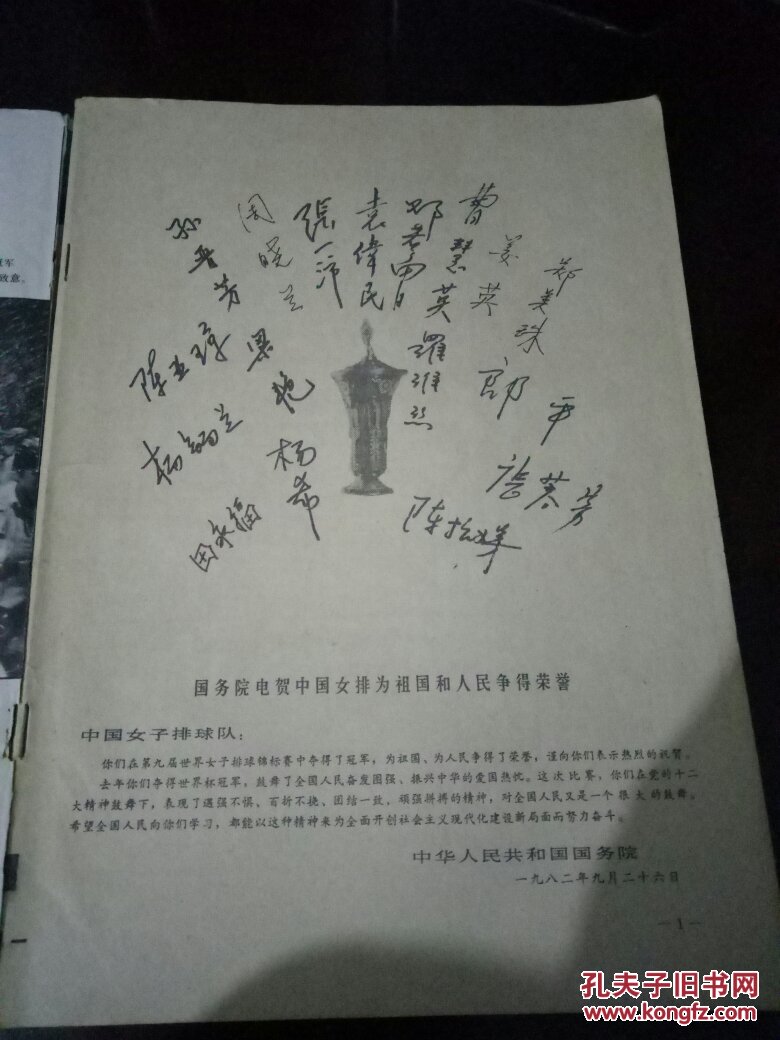 冠军
致意。
孙晋芳
周晓兰
张一沛
袁伟民
邓若曾
曹慧英
姜英
郑美珠
陈亚琼
梁艳
罗维丝
郎平
杨锡兰
杨希
张蓉芳
田永福
陈招娣
国务院电贺中国女排为祖国和人民争得荣誉
中国女子排球队：
你们在第九届世界女子排球锦标赛中夺得了冠军，为祖国、为人民争得了荣誉，谨向你们表示热烈的祝贺。
去年你们夺得世界杯冠军，鼓舞了全国人民奋发图强、振兴中华的爱国热忱。这次比赛，你们在党的十二
大精神鼓舞下，表现了遇强不惧、百折不挠、团结一致，顽强拼搏的精神，对全国人民又是一个很大的鼓舞。
希望全国人民向你们学习，都能以这种精神来为全面开创社会主义现代化建设新局面而努力奋斗。
中华人民共和国国务院
一九八二年九月二十六日
—1—
孔夫子旧书网
kongfz.com